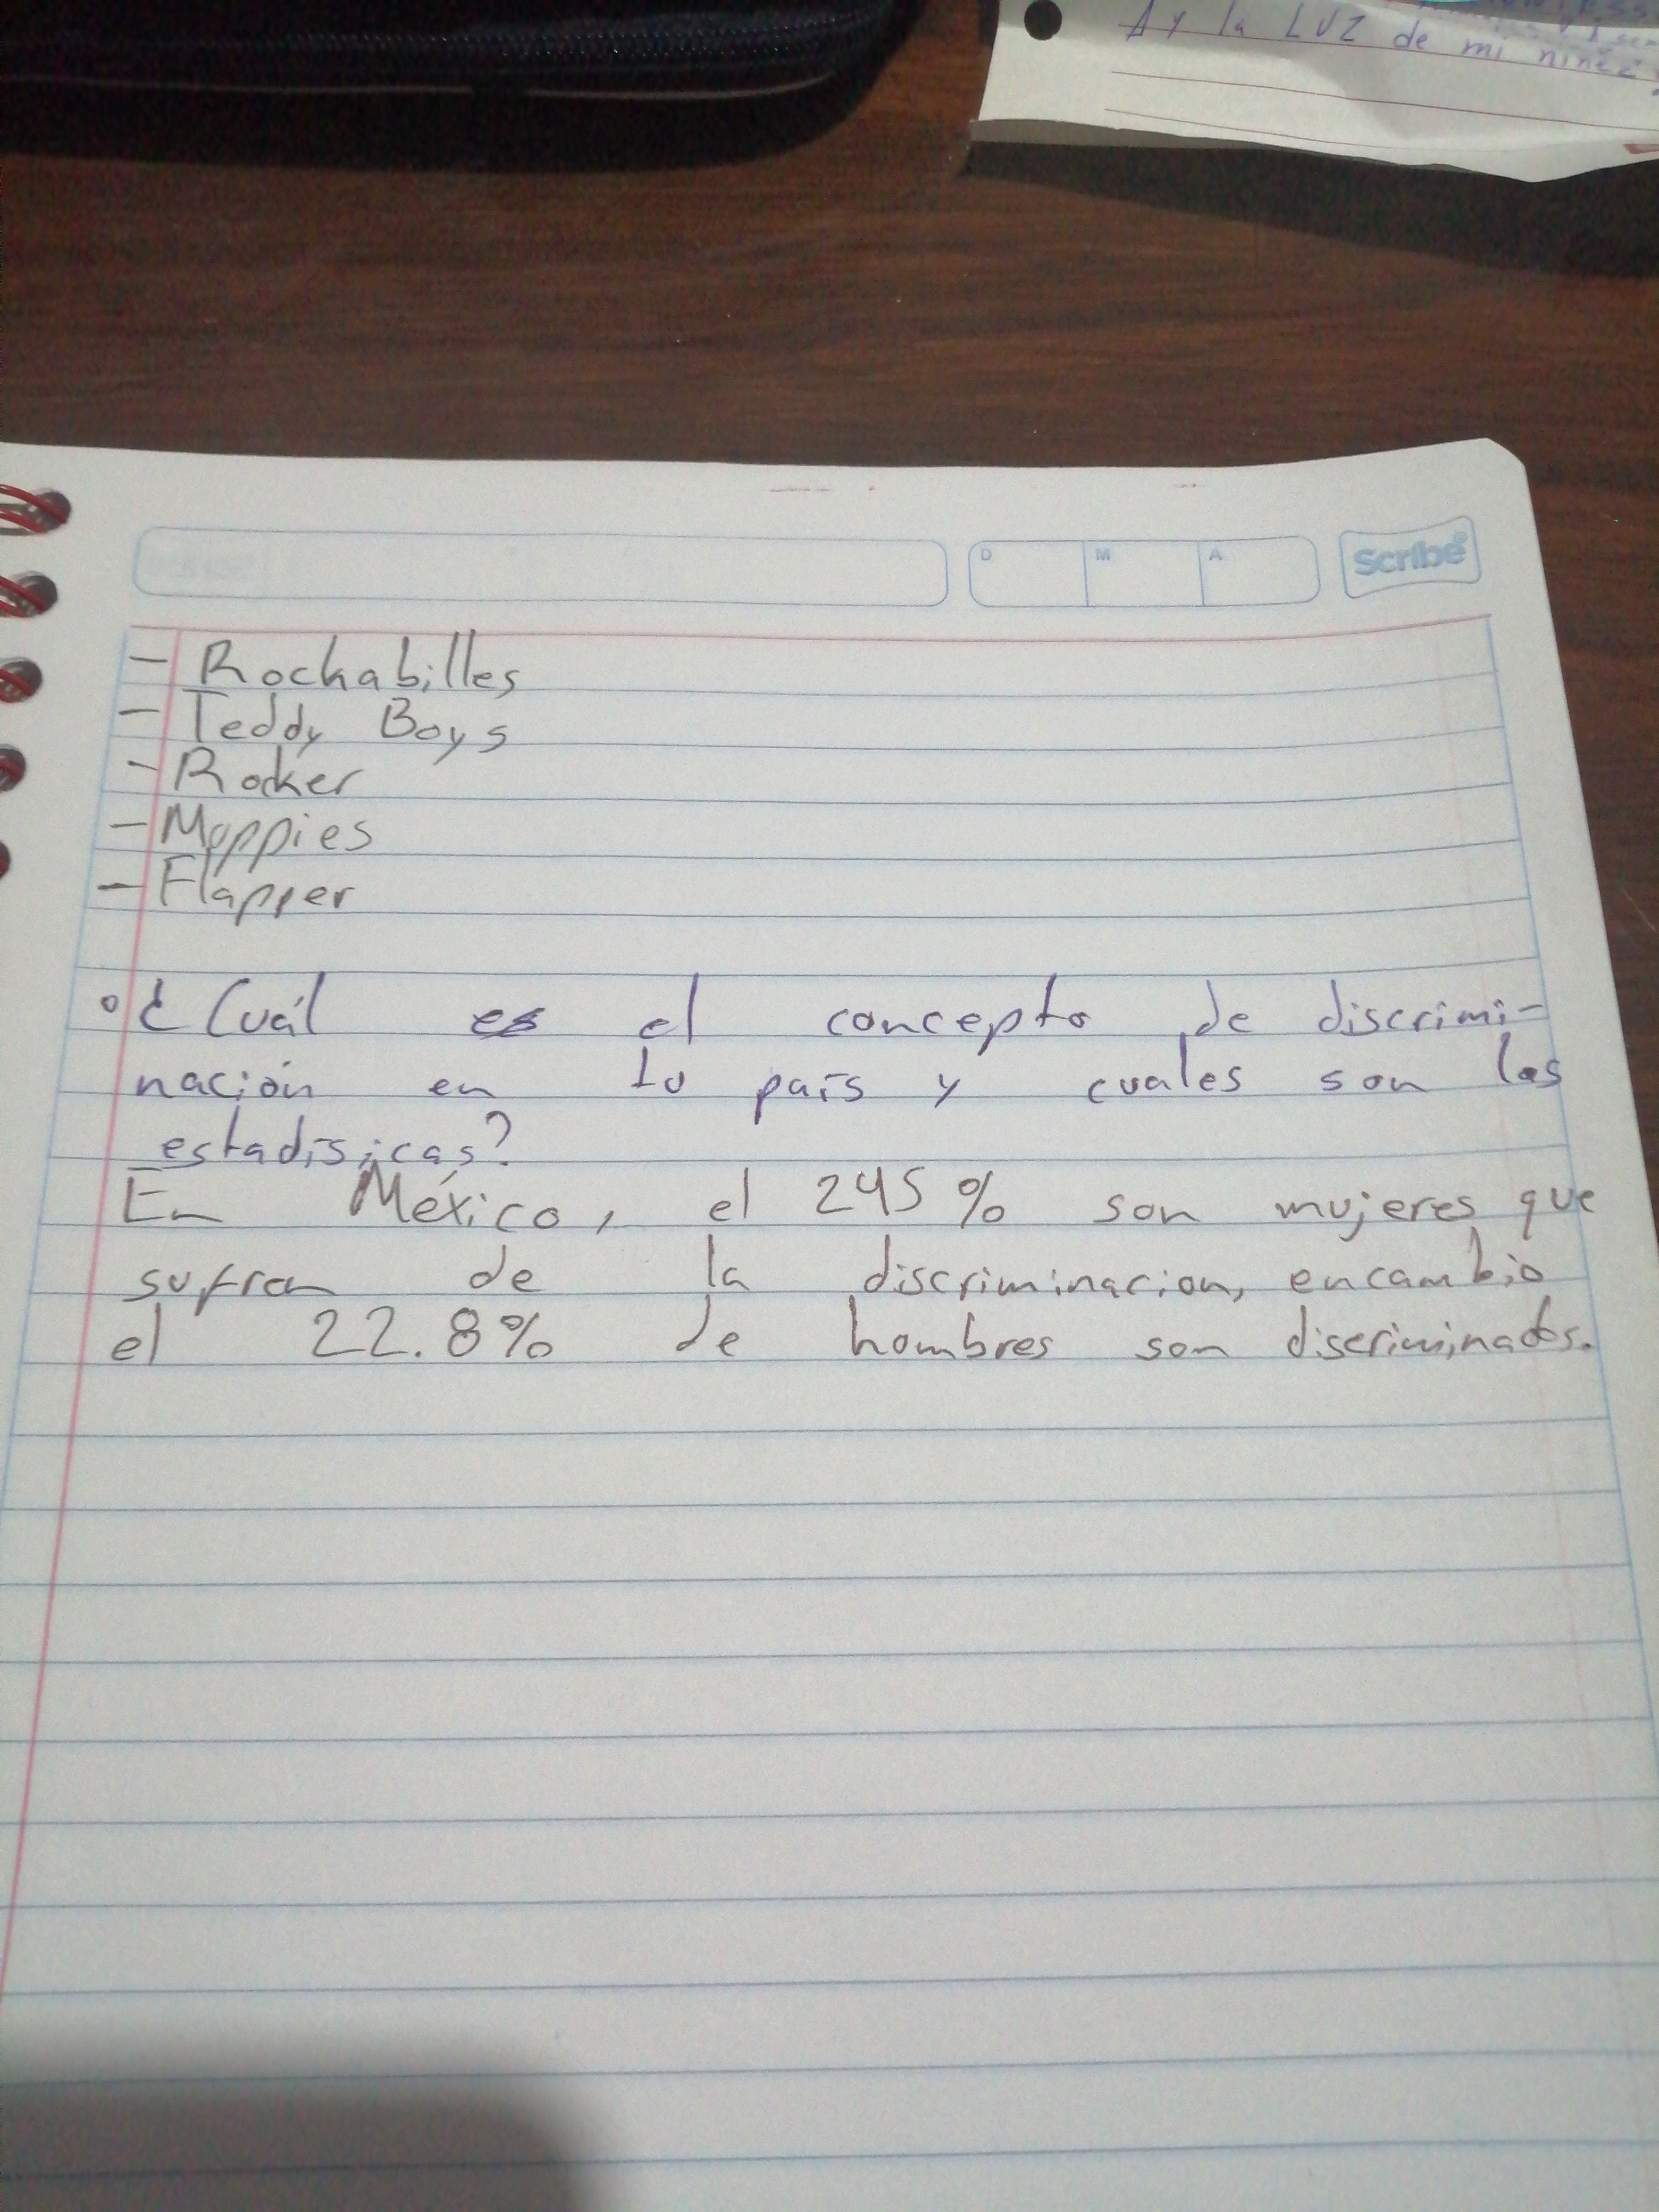 Ay la LUZ de mi niñez
D M A Scribe
- Rockabilles
- Teddy Boys
- Rocker
- Moppies
- Flapper
° ¿Cuál es el concepto de discrimi-
nación en tu país y cuales son las
estadísicas?
En México, el 245% son mujeres que
sufren de la discriminacion, encambio
el 22.8% de hombres son discriminados.